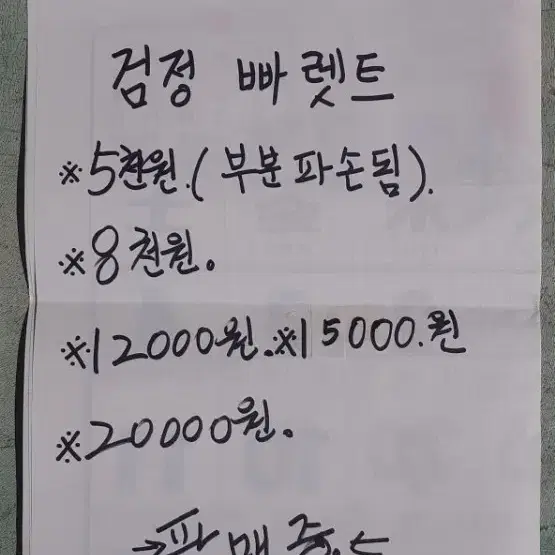 검정 빠렛트
※5천원.(부분파손됨).
※8천원.
※12000원.※15000.원
※20000원.
→판매중.←